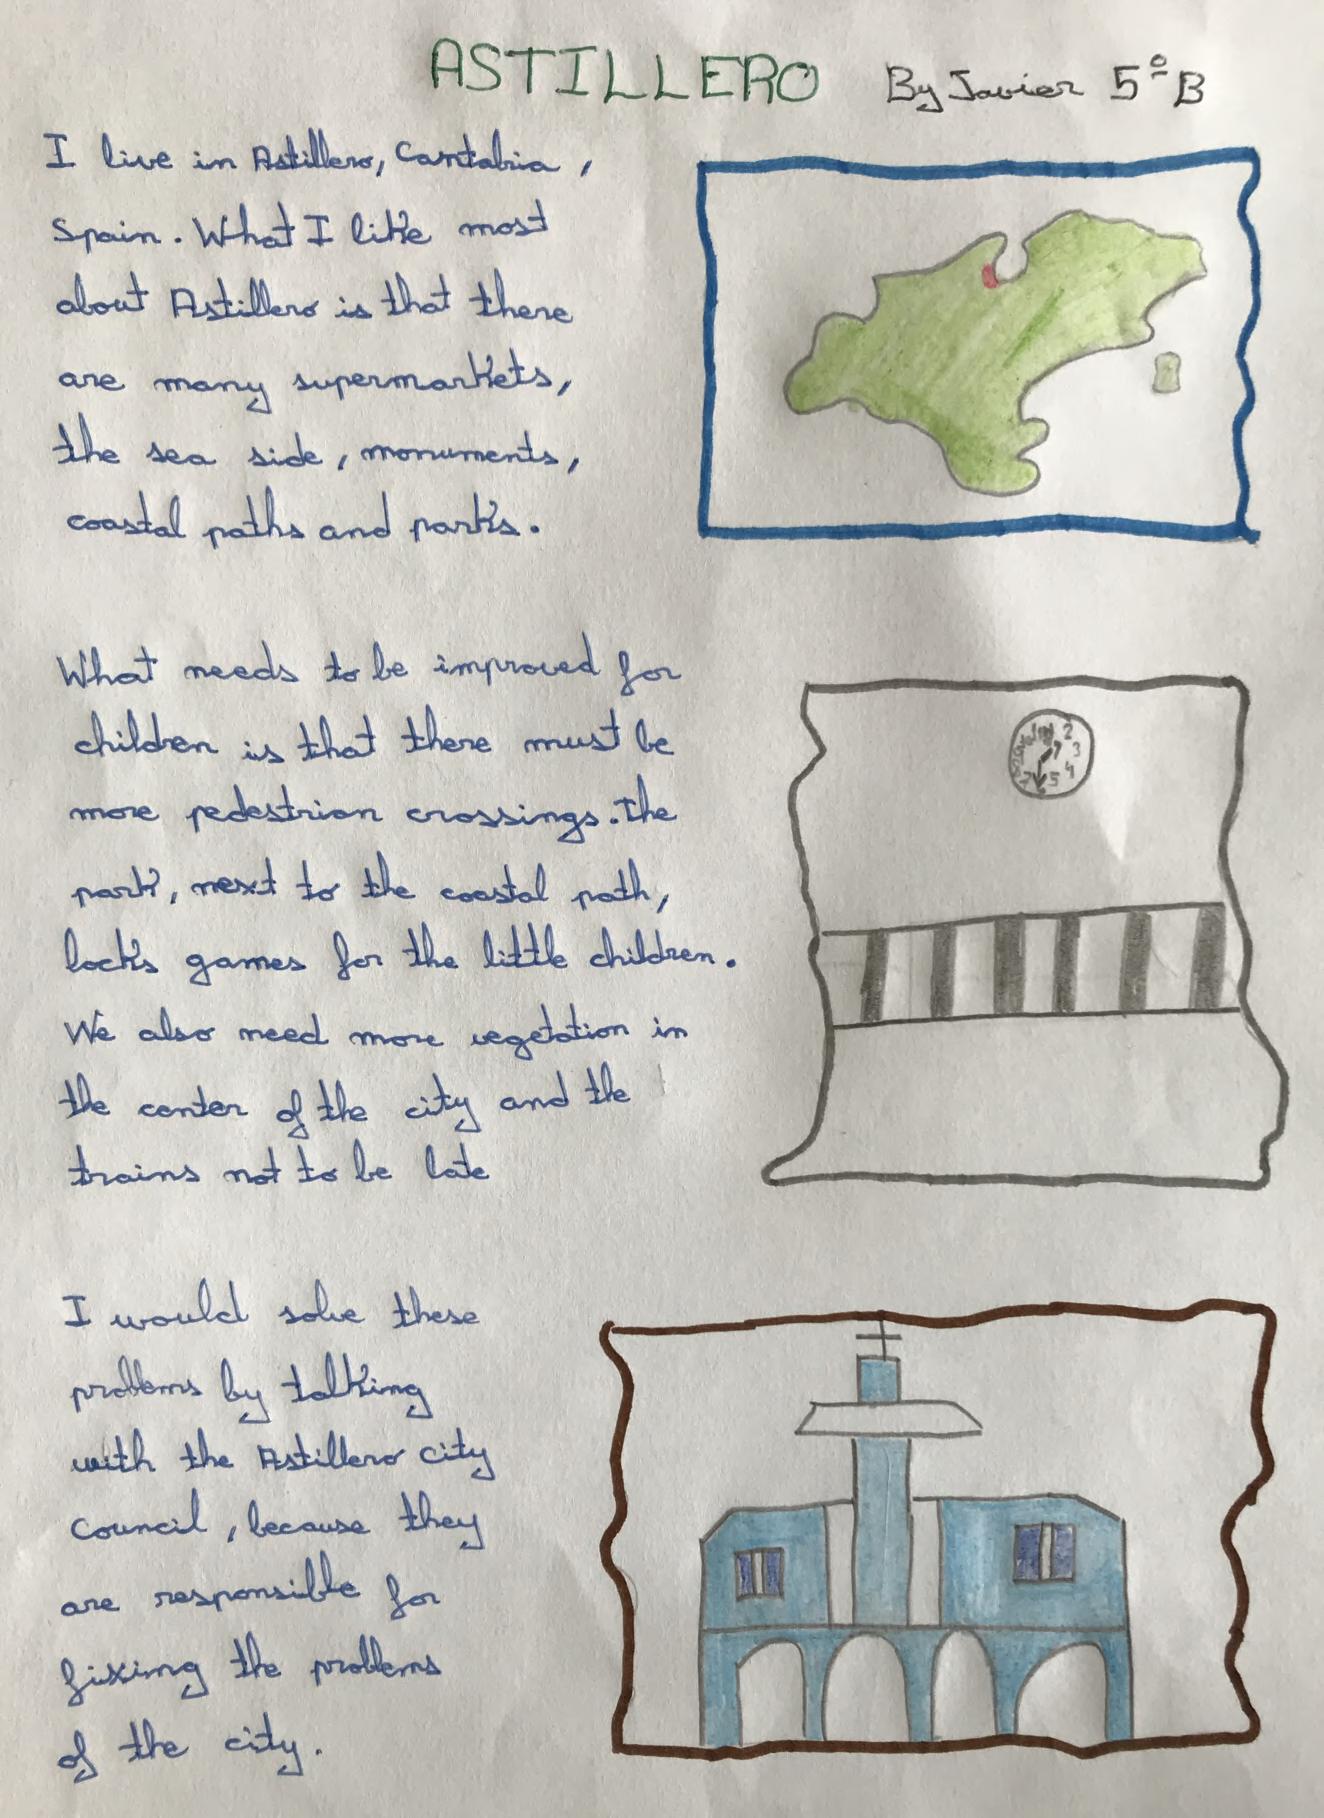 ASTILLERO By Javier 5ºB
I live in Astillero, Cantabria,
Spain. What I like most
about Astillero is that there
are many supermarkets,
the sea side, monuments,
coastal paths and parks.
What needs to be improved for
children is that there must be
more pedestrian crossings. The
park, next to the coastal path,
lacks games for the little children.
We also need more vegetation in
the center of the city and the
trains not to be late
I would solve these
problems by talking
with the Astillero city
council, because they
are responsible for
fixing the problems
of the city.